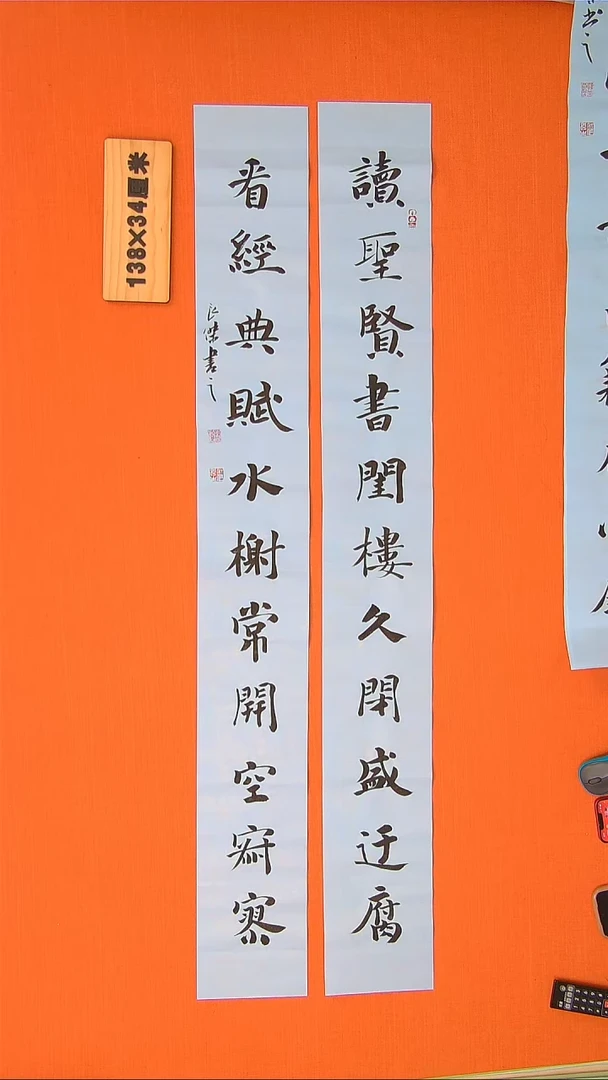 138X34厘米
讀聖賢書閨樓久閉盛迂腐
看經典賦水榭常開空寂寥
良傑書之
書之